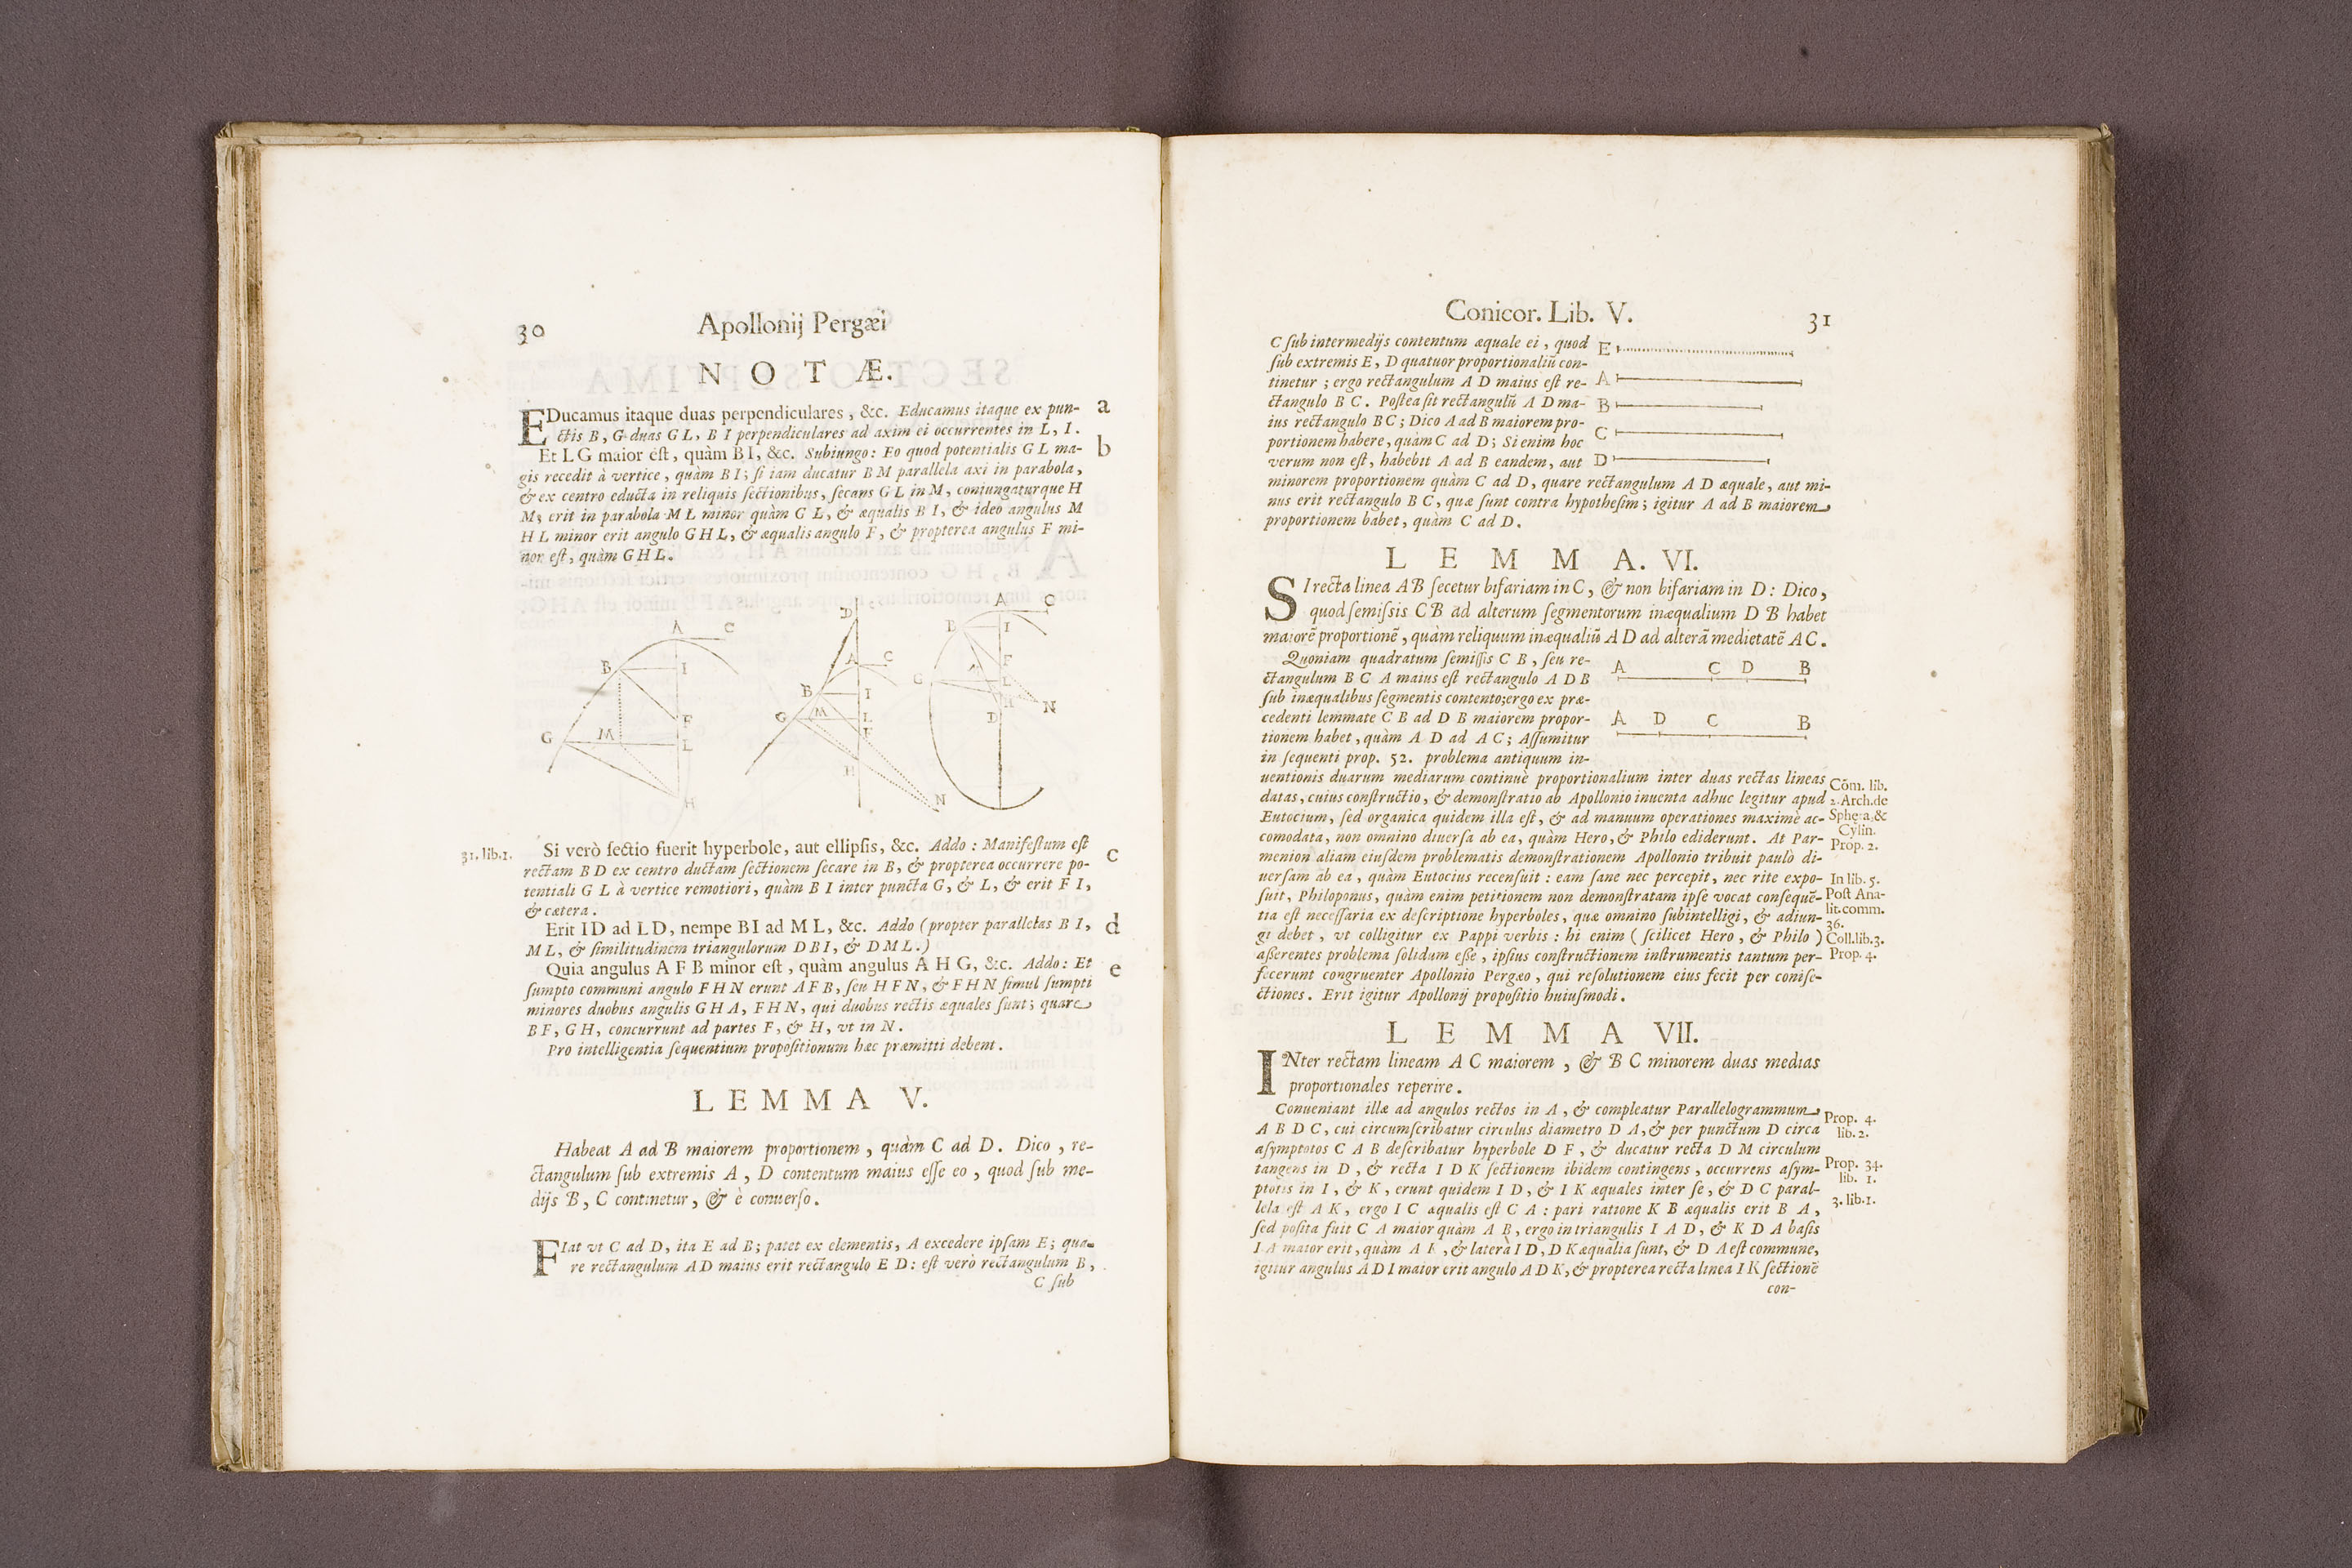 30
Apollonij Pergæi
NOTÆ.
EDucamus itaque duas perpendiculares, &c. Educamus itaque ex pun- a
ctis B, G duas GL, BI perpendiculares ad axim ei occurrentes in L, I.
Et LG maior est, quàm BI, &c. Subiungo: Eo quod potentialis GL ma- b
gis recedit à vertice, quàm BI; si iam ducatur BM parallela axi in parabola,
& ex centro educta in reliquis sectionibus, secans GL in M, coniungaturque H
M; erit in parabola ML minor quàm GL, & æqualis BI, & ideo angulus M
HL minor erit angulo GHL, & æqualis angulo F, & propterea angulus F mi-
nor est, quàm GHL.
A C
B I
F
G M L
H
D
A C
B I
G M L
F
H
N
A C
B I
F
G L
H N
D
31. lib. 1.
Si verò sectio fuerit hyperbole, aut ellipsis, &c. Addo: Manifestum est c
rectam BD ex centro ductam sectionem secare in B, & propterea occurrere po-
tentiali GL à vertice remotiori, quàm BI inter puncta G, & L, & erit FI,
& cætera.
Erit ID ad LD, nempe BI ad ML, &c. Addo (propter parallelas BI, d
ML, & similitudinem triangulorum DBI, & DML.)
Quia angulus AFB minor est, quàm angulus AHG, &c. Addo: Et e
sumpto communi angulo FHN erunt AFB, seu HFN, & FHN simul sumpti
minores duobus angulis GHA, FHN, qui duobus rectis æquales sunt; quare
BF, GH, concurrunt ad partes F, & H, vt in N.
Pro intelligentia sequentium propositionum hæc præmitti debent.
LEMMA V.
Habeat A ad B maiorem proportionem, quàm C ad D. Dico, re-
ctangulum sub extremis A, D contentum maius esse eo, quod sub me-
dijs B, C continetur, & è conuerso.
FIat vt C ad D, ita E ad B; patet ex elementis, A excedere ipsam E; qua-
re rectangulum AD maius erit rectangulo ED: est verò rectangulum B,
C sub
Conicor. Lib. V.
31
C sub intermedijs contentum æquale ei, quod
sub extremis E, D quatuor proportionaliũ con-
tinetur; ergo rectangulum AD maius est re-
ctangulo BC. Postea sit rectangulũ AD ma-
ius rectangulo BC; Dico A ad B maiorem pro-
portionem habere, quàm C ad D; Si enim hoc
verum non est, habebit A ad B eandem, aut
E
A
B
C
D
minorem proportionem quàm C ad D, quare rectangulum AD æquale, aut mi-
nus erit rectangulo BC, quæ sunt contra hypothesim; igitur A ad B maiorem
proportionem habet, quàm C ad D.
LEMMA. VI.
SI recta linea AB secetur bifariam in C, & non bifariam in D: Dico,
quod semissis CB ad alterum segmentorum inæqualium DB habet
maiorẽ proportionẽ, quàm reliquum inæqualiũ AD ad alterã medietatẽ AC.
Quoniam quadratum semissis CB, seu re-
ctangulum BCA maius est rectangulo ADB
sub inæqualibus segmentis contento; ergo ex præ-
cedenti lemmate CB ad DB maiorem propor-
tionem habet, quàm AD ad AC; Assumitur
in sequenti prop. 52. problema antiquum in-
A C D B
A D C B
uentionis duarum mediarum continuè proportionalium inter duas rectas lineas
datas, cuius constructio, & demonstratio ab Apollonio inuenta adhuc legitur apud
Eutocium, sed organica quidem illa est, & ad manuum operationes maximè ac-
comodata, non omnino diuersa ab ea, quàm Hero, & Philo ediderunt. At Par-
menion aliam eiusdem problematis demonstrationem Apollonio tribuit paulò di-
uersam ab ea, quàm Eutocius recensuit: eam sane nec percepit, nec rite expo-
suit, Philoponus, quàm enim petitionem non demonstratam ipse vocat consequẽ-
tia est necessaria ex descriptione hyperboles, quæ omnino subintelligi, & adiun-
gi debet, vt colligitur ex Pappi verbis: hi enim (scilicet Hero, & Philo)
asserentes problema solidum esse, ipsius constructionem instrumentis tantum per-
fecerunt congruenter Apollonio Pergæo, qui resolutionem eius fecit per conise-
ctiones. Erit igitur Apollonij propositio huiusmodi.
Cõm. lib.
2. Arch. de
Sphęra, &
Cylin.
Prop. 2.
In lib. 5.
Post Ana-
lit. comm.
36.
Coll. lib. 3.
Prop. 4.
LEMMA VII.
INter rectam lineam AC maiorem, & BC minorem duas medias
proportionales reperire.
Conueniant illæ ad angulos rectos in A, & compleatur Parallelogrammum
ABDC, cui circumscribatur circulus diametro DA, & per punctum D circa
asymptotos CAB describatur hyperbole DF, & ducatur recta DM circulum
tangens in D, & recta IDK sectionem ibidem contingens, occurrens asym-
ptotis in I, & K, erunt quidem ID, & IK æquales inter se, & DC paral-
lela est AK, ergo IC æqualis est CA: pari ratione KB æqualis erit BA,
sed posita fuit CA maior quàm AB, ergo in triangulis IAD, & KDA basis
IA maior erit, quàm AK, & laterà ID, DK æqualia sunt, & DA est commune,
igitur angulus ADI maior erit angulo ADK, & propterea recta linea IK sectionẽ
con-
Prop. 4.
lib. 2.
Prop. 34.
lib. 1.
3. lib. 1.